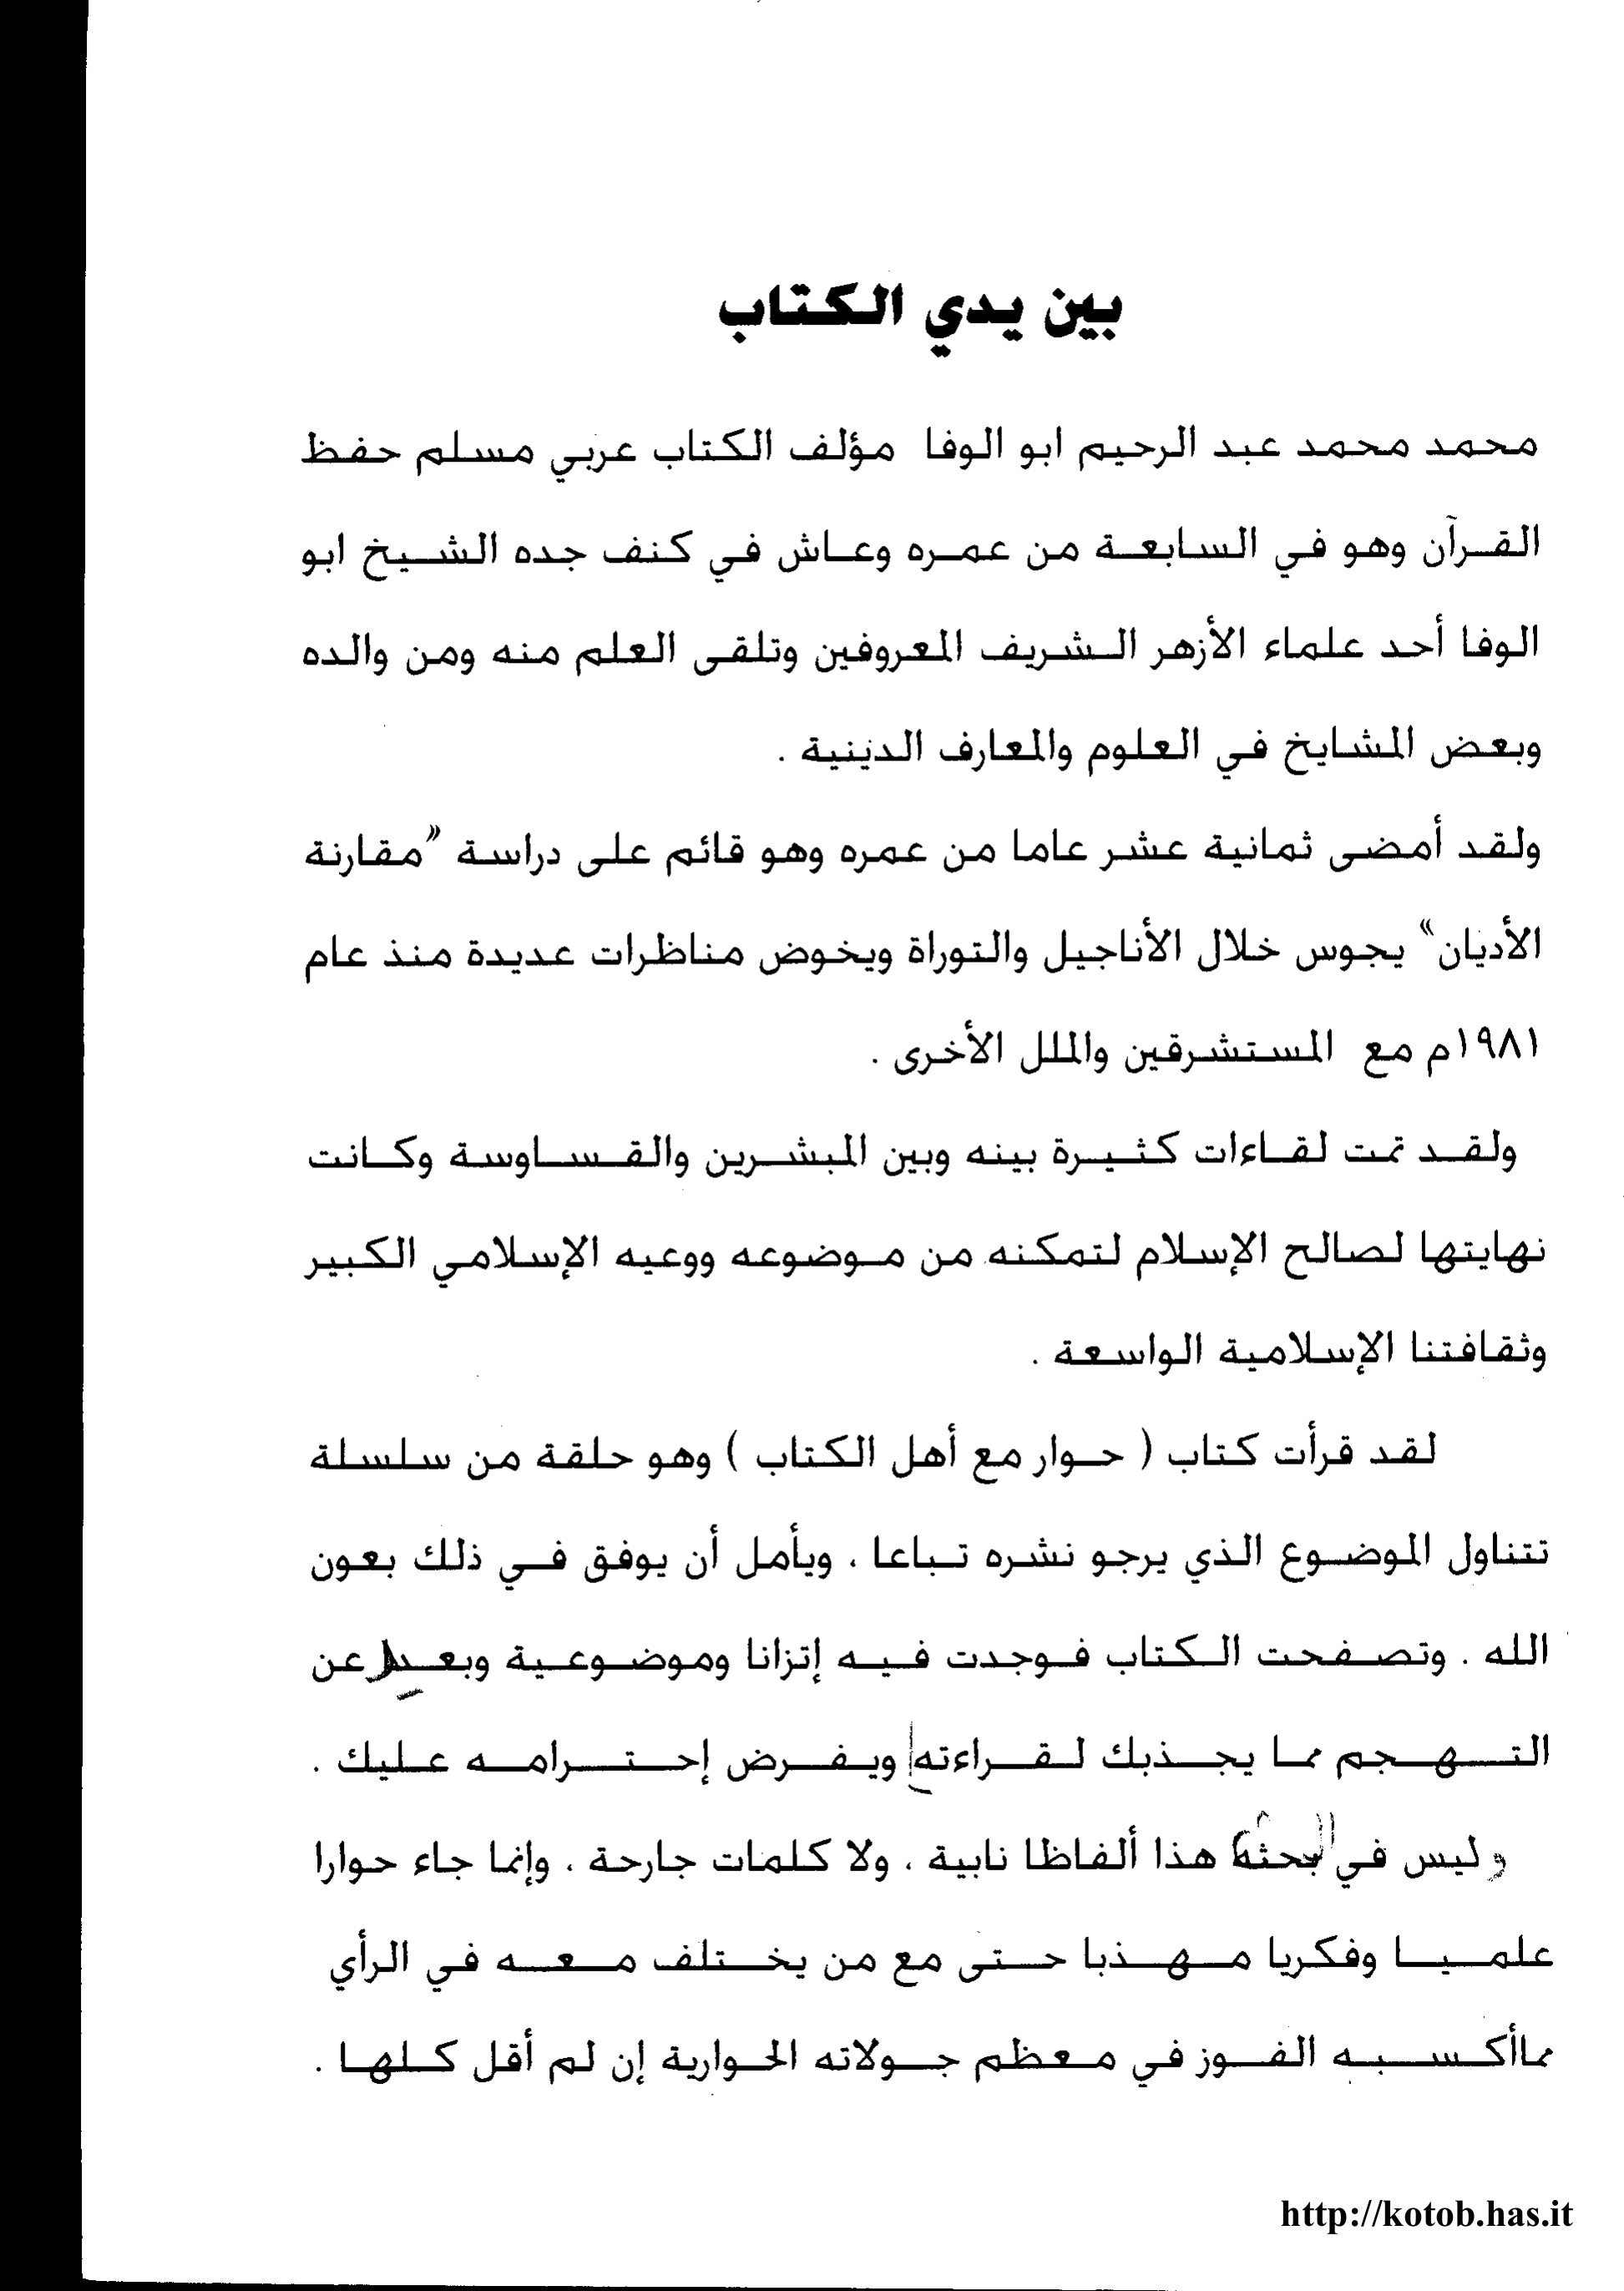 بين يدي الكتاب
محمد محمد عبد الرحيم ابو الوفا مؤلف الكتاب عربي مسلم حفظ
القرآن وهو في السابعة من عمره وعاش في كنف جده الشيخ ابو
الوفا أحد علماء الأزهر الشريف المعروفين وتلقى العلم منه ومن والده
وبعض المشايخ في العلوم والمعارف الدينية .
ولقد أمضى ثمانية عشر عاما من عمره وهو قائم على دراسة "مقارنة
الأديان" يجوس خلال الأناجيل والتوراة ويخوض مناظرات عديدة منذ عام
١٩٨١م مع المستشرقين والملل الأخرى .
ولقد تمت لقاءات كثيرة بينه وبين المبشرين والقساوسة وكانت
نهايتها لصالح الإسلام لتمكنه من موضوعه ووعيه الإسلامي الكبير
وثقافتنا الإسلامية الواسعة .
لقد قرأت كتاب ( حوار مع أهل الكتاب ) وهو حلقة من سلسلة
تتناول الموضوع الذي يرجو نشره تباعا ، ويأمل أن يوفق في ذلك بعون
الله . وتصفحت الكتاب فوجدت فيه إتزانا وموضوعية عن
التهجم مما يجذبك لقراءته ويفرض إحترامه عليك .
وليس في هذا ألفاظا نابية ، ولا كلمات جارحة ، وإنما جاء حوارا
علميا وفكريا مهذبا حتى مع من يختلف معه في الرأي
مماأكسبه الفوز في معظم جولاته الحوارية إن لم أقل كلها .
http://kotob.has.it